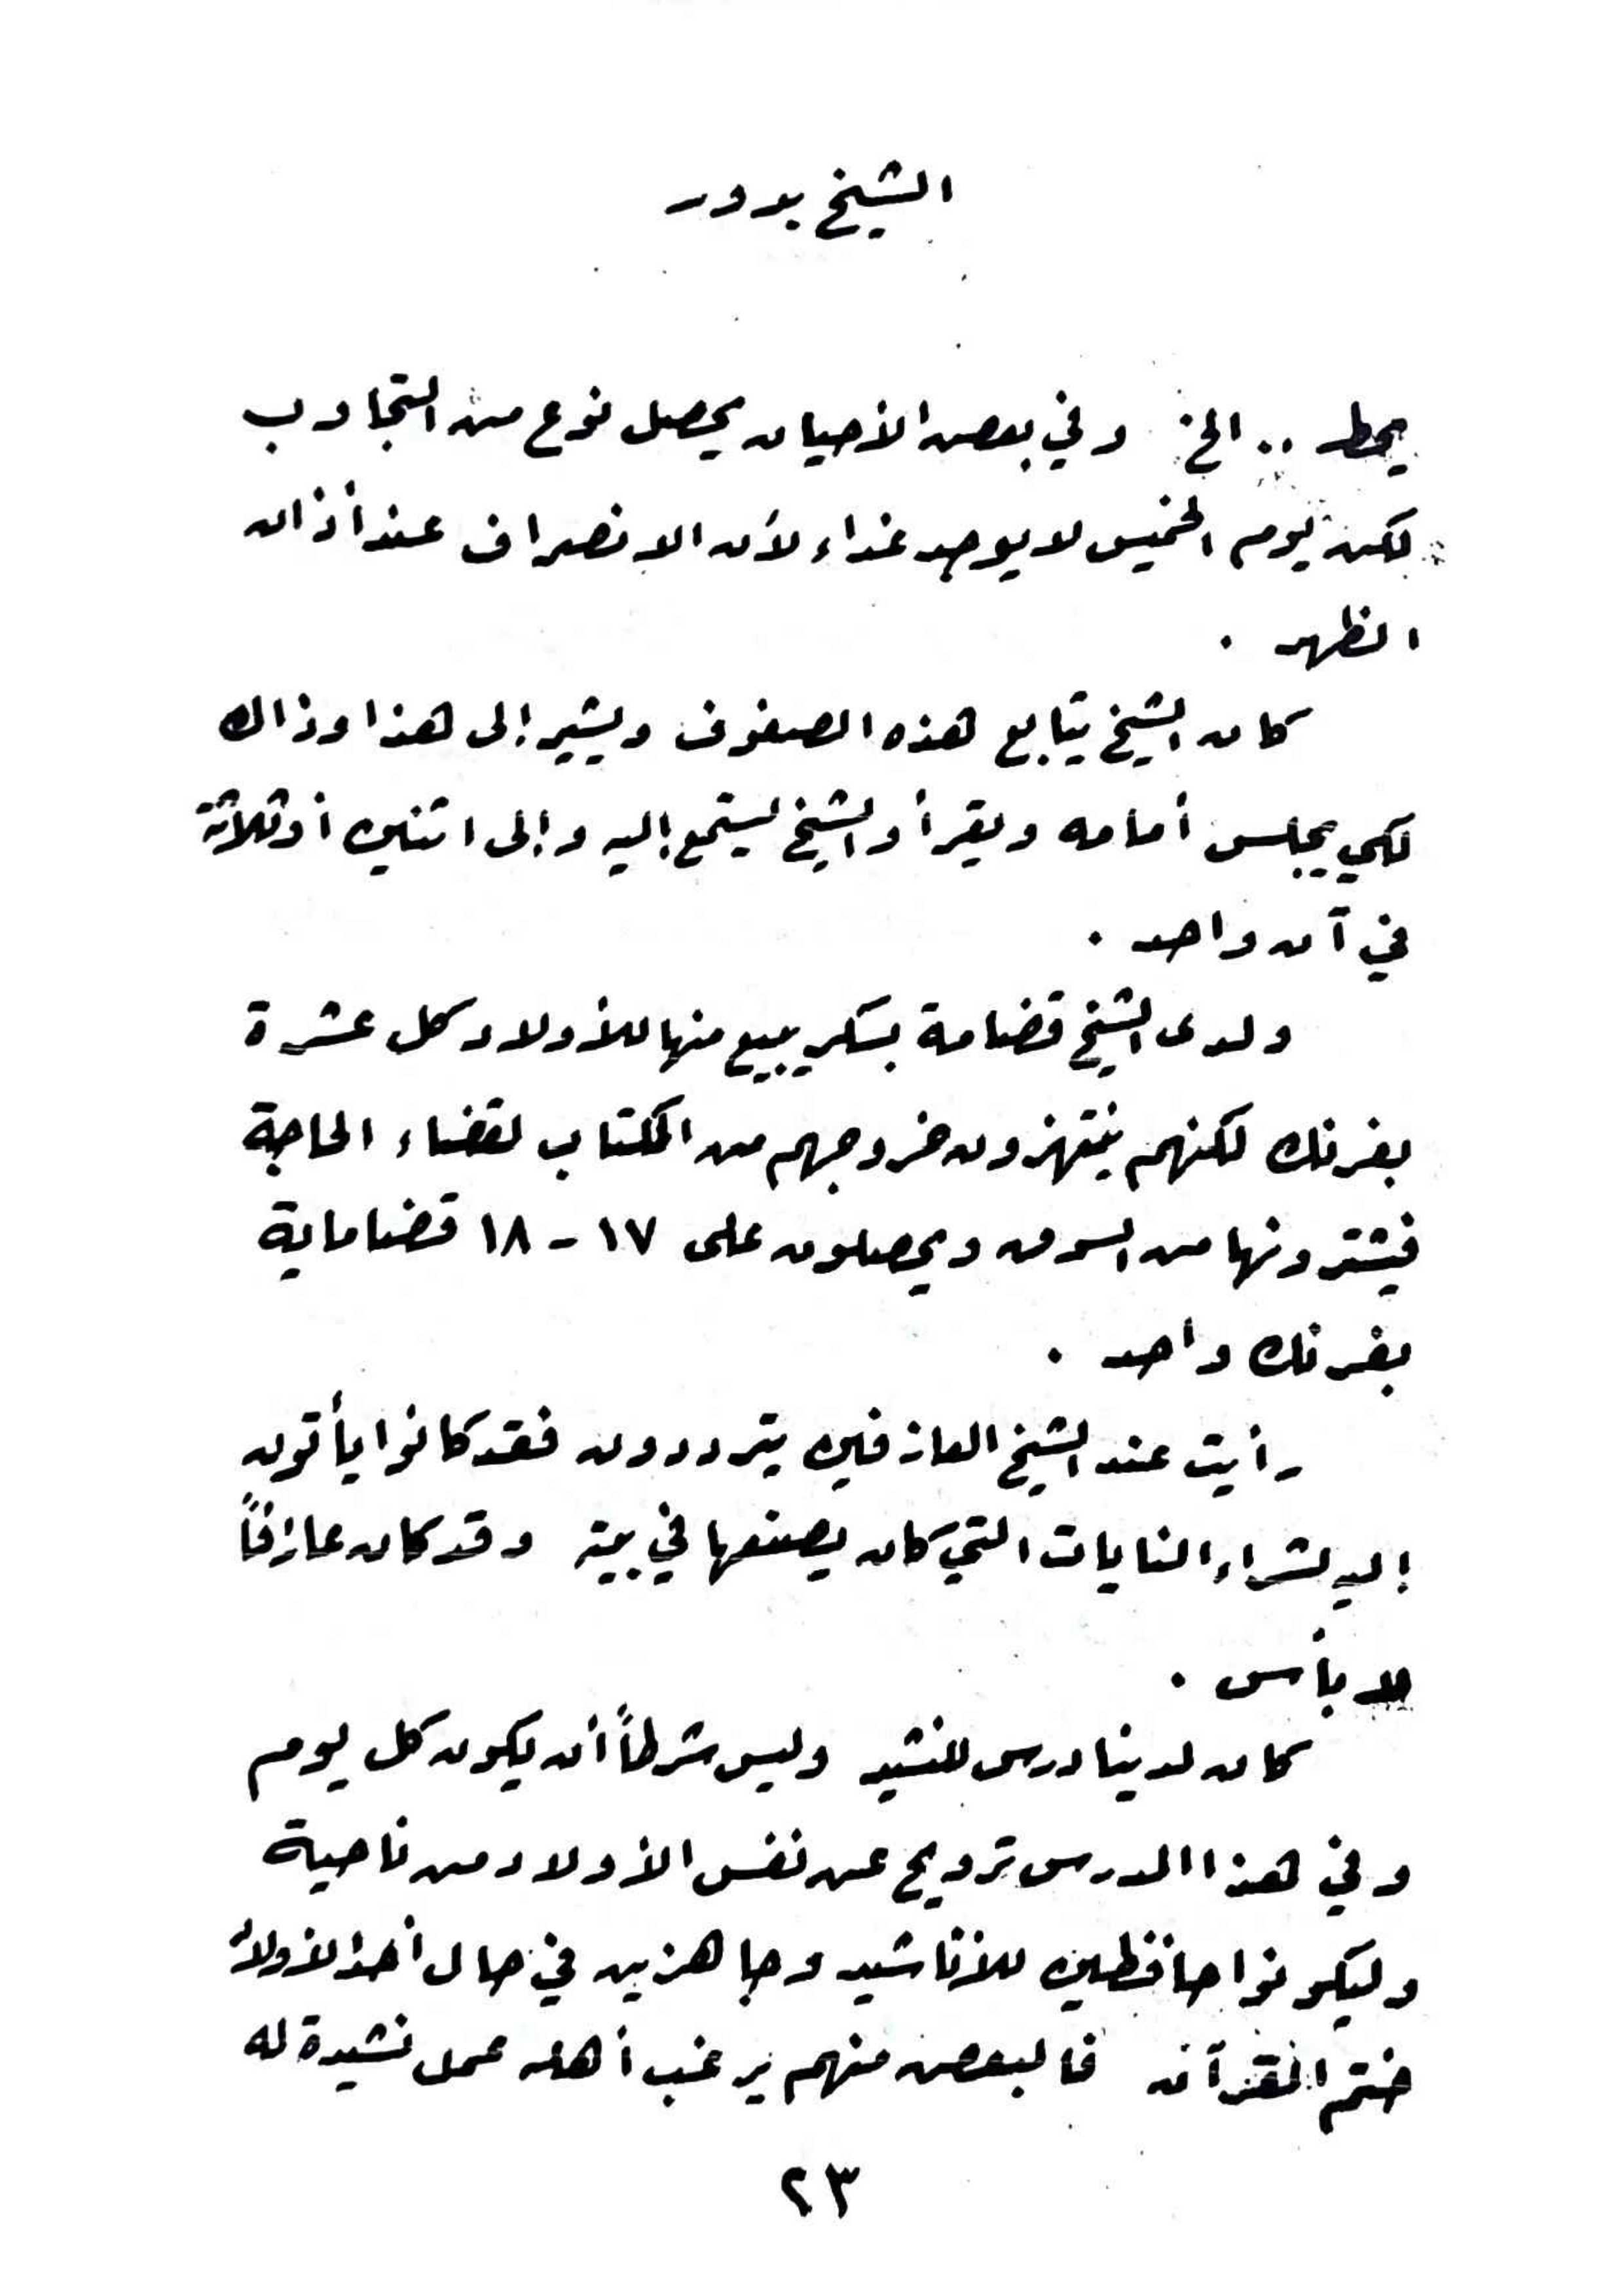 الشيخ بدور
يحط .. الخ وفي بعض الأحيان يحصل نوع من التجاوب
لكن يوم الخميس لا يوجد غداء لأن الانصراف عند أذان
الظهر .
كان الشيخ يتابع هذه الصفوف ويشير إلى هذا وذاك
لكي يجلس أمامه ويقرأ والشيخ يستمع إليه وإلى اثنين أو ثلاثة
في آن واحد .
ولدى الشيخ قضامة بسكر يبيع منها للأولاد كل عشرة
بفرنك لكنهم ينتهزون خروجهم من الكتاب لقضاء الحاجة
فيشترونها من السوق ويحصلون على ١٧ - ١٨ قضاماية
بفرنك واحد .
رأيت عند الشيخ العازفين يترددون فقد كانوا يأتون
إليه لشراء النايات التي كان يصنعها في بيته وقد كان عازفاً
لا بأس .
كان لدينا درس للنشيد وليس شرطاً أن يكون كل يوم
وفي هذا الدرس ترويح عن نفس الأولاد من ناحية
وليكونوا حافظين للأناشيد وجاهزين في حال أخذ الأولاد
ختم القرآن فالبعض منهم يرغب أهله عمل نشيدة له
٢٣